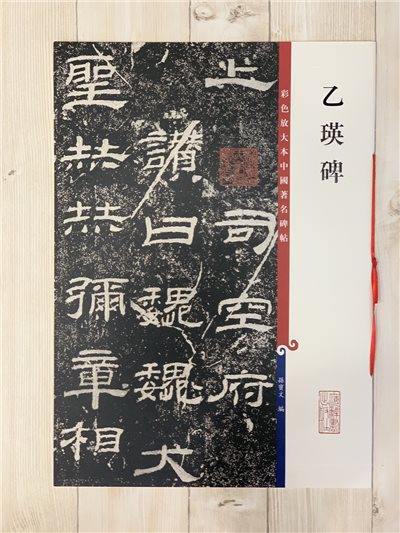 乙瑛碑
彩色放大本中國著名碑帖
孫寶文 編
上司空府
讚曰巍巍大
聖赫赫彌章相